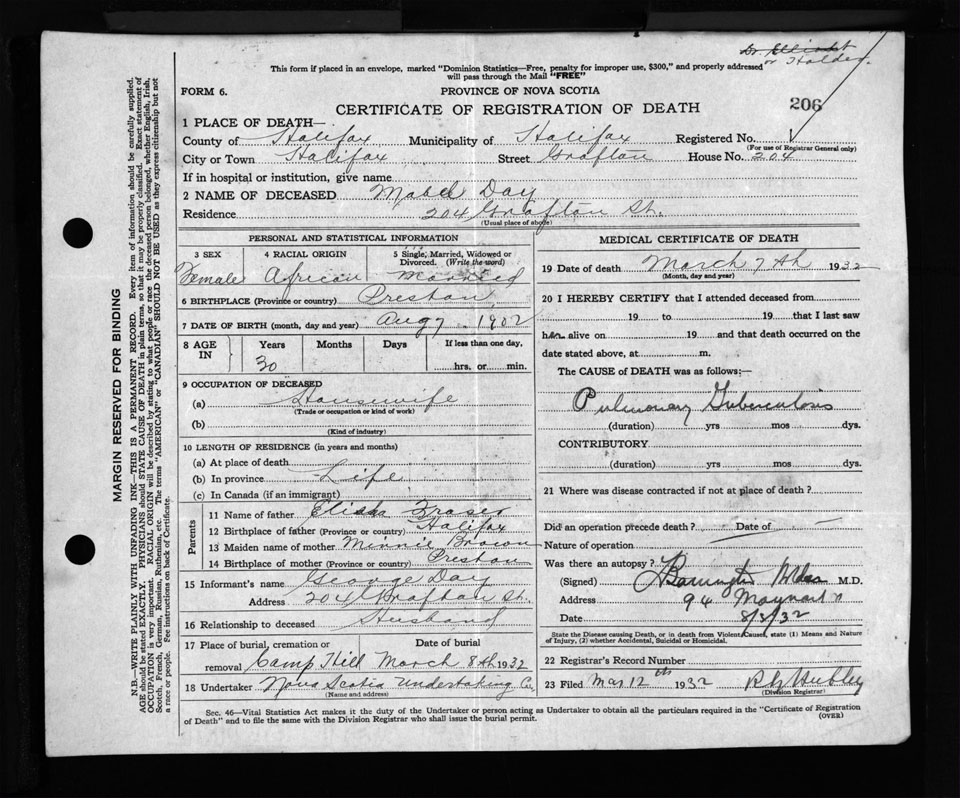 This form if placed in an envelope, marked "Dominion Statistics—Free, penalty for improper use, $300," and properly addressed
will pass through the Mail "FREE"
or Halder.
FORM 6.
PROVINCE OF NOVA SCOTIA
206
CERTIFICATE OF REGISTRATION OF DEATH
1 PLACE OF DEATH—
County of Halifax Municipality of Halifax Registered No.
(For use of Registrar General only)
City or Town Halifax Street Grafton House No. 204
If in hospital or institution, give name
2 NAME OF DECEASED Mabel Day
Residence 204 Grafton St.
(Usual place of abode)
PERSONAL AND STATISTICAL INFORMATION
3 SEX 4 RACIAL ORIGIN 5 Single, Married, Widowed or
Divorced. (Write the word)
Female African Married
6 BIRTHPLACE (Province or country) Preston
7 DATE OF BIRTH (month, day and year) Aug 7 1902
8 AGE IN Years Months Days If less than one day,
30 hrs. or min.
9 OCCUPATION OF DECEASED
(a) Housewife
(Trade or occupation or kind of work)
(b)
(Kind of industry)
10 LENGTH OF RESIDENCE (in years and months)
(a) At place of death
(b) In province Life
(c) In Canada (if an immigrant)
Parents
11 Name of father Elisha Fraser
12 Birthplace of father (Province or country) Halifax
13 Maiden name of mother Minnie Brown
14 Birthplace of mother (Province or country) Preston
15 Informant's name George Day
Address 204 Grafton St.
16 Relationship to deceased Husband
17 Place of burial, cremation or removal Date of burial
Camp Hill March 8th 1932
18 Undertaker Nova Scotia Undertaking Co.
(Name and address)
MEDICAL CERTIFICATE OF DEATH
19 Date of death March 7th 1932
(Month, day and year)
20 I HEREBY CERTIFY that I attended deceased from
19 to 19 that I last saw
h alive on 19 and that death occurred on
date stated above, at m.
The CAUSE of DEATH was as follows:—
Pulmonary Tuberculosis
(duration) yrs mos dys.
CONTRIBUTORY
(duration) yrs mos dys.
21 Where was disease contracted if not at place of death?
Did an operation precede death? Date of —
Nature of operation
Was there an autopsy?
(Signed) M.D.
Address 94 Maynard
Date 8/3/32
State the Disease causing Death, or in death from Violent Causes, state (1) Means and Nature
of Injury, (2) whether Accidental, Suicidal or Homicidal.
22 Registrar's Record Number
23 Filed Mar 12th 1932 Hubley
(Division Registrar)
Sec. 46—Vital Statistics Act makes it the duty of the Undertaker or person acting as Undertaker to obtain all the particulars required in the "Certificate of Registration
of Death" and to file the same with the Division Registrar who shall issue the burial permit.
(OVER)
MARGIN RESERVED FOR BINDING
N.B.—WRITE PLAINLY WITH UNFADING INK—THIS IS A PERMANENT RECORD. Every item of information should be carefully supplied.
AGE should be stated EXACTLY. PHYSICIANS should STATE CAUSE OF DEATH in plain terms, so that it may be properly classified. Exact statement of
OCCUPATION is very important. RACIAL ORIGIN will be described by stating to what people or race the deceased person belonged, whether English, Irish,
Scotch, French, German, Russian, Ruthenian, etc. The terms "AMERICAN" or "CANADIAN" SHOULD NOT BE USED as they express citizenship but not
a race or people. See instructions on back of Certificate.